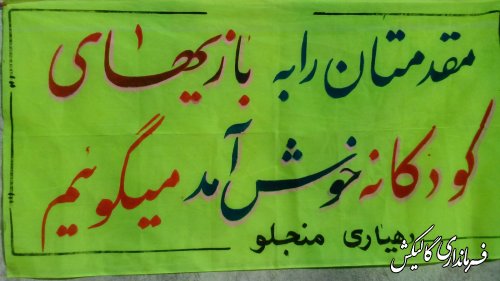 مقدمتان را به بازیهای
کودکانه خوش آمد میگوئیم
دهیاری منجلو
فرمانداری گالیکش